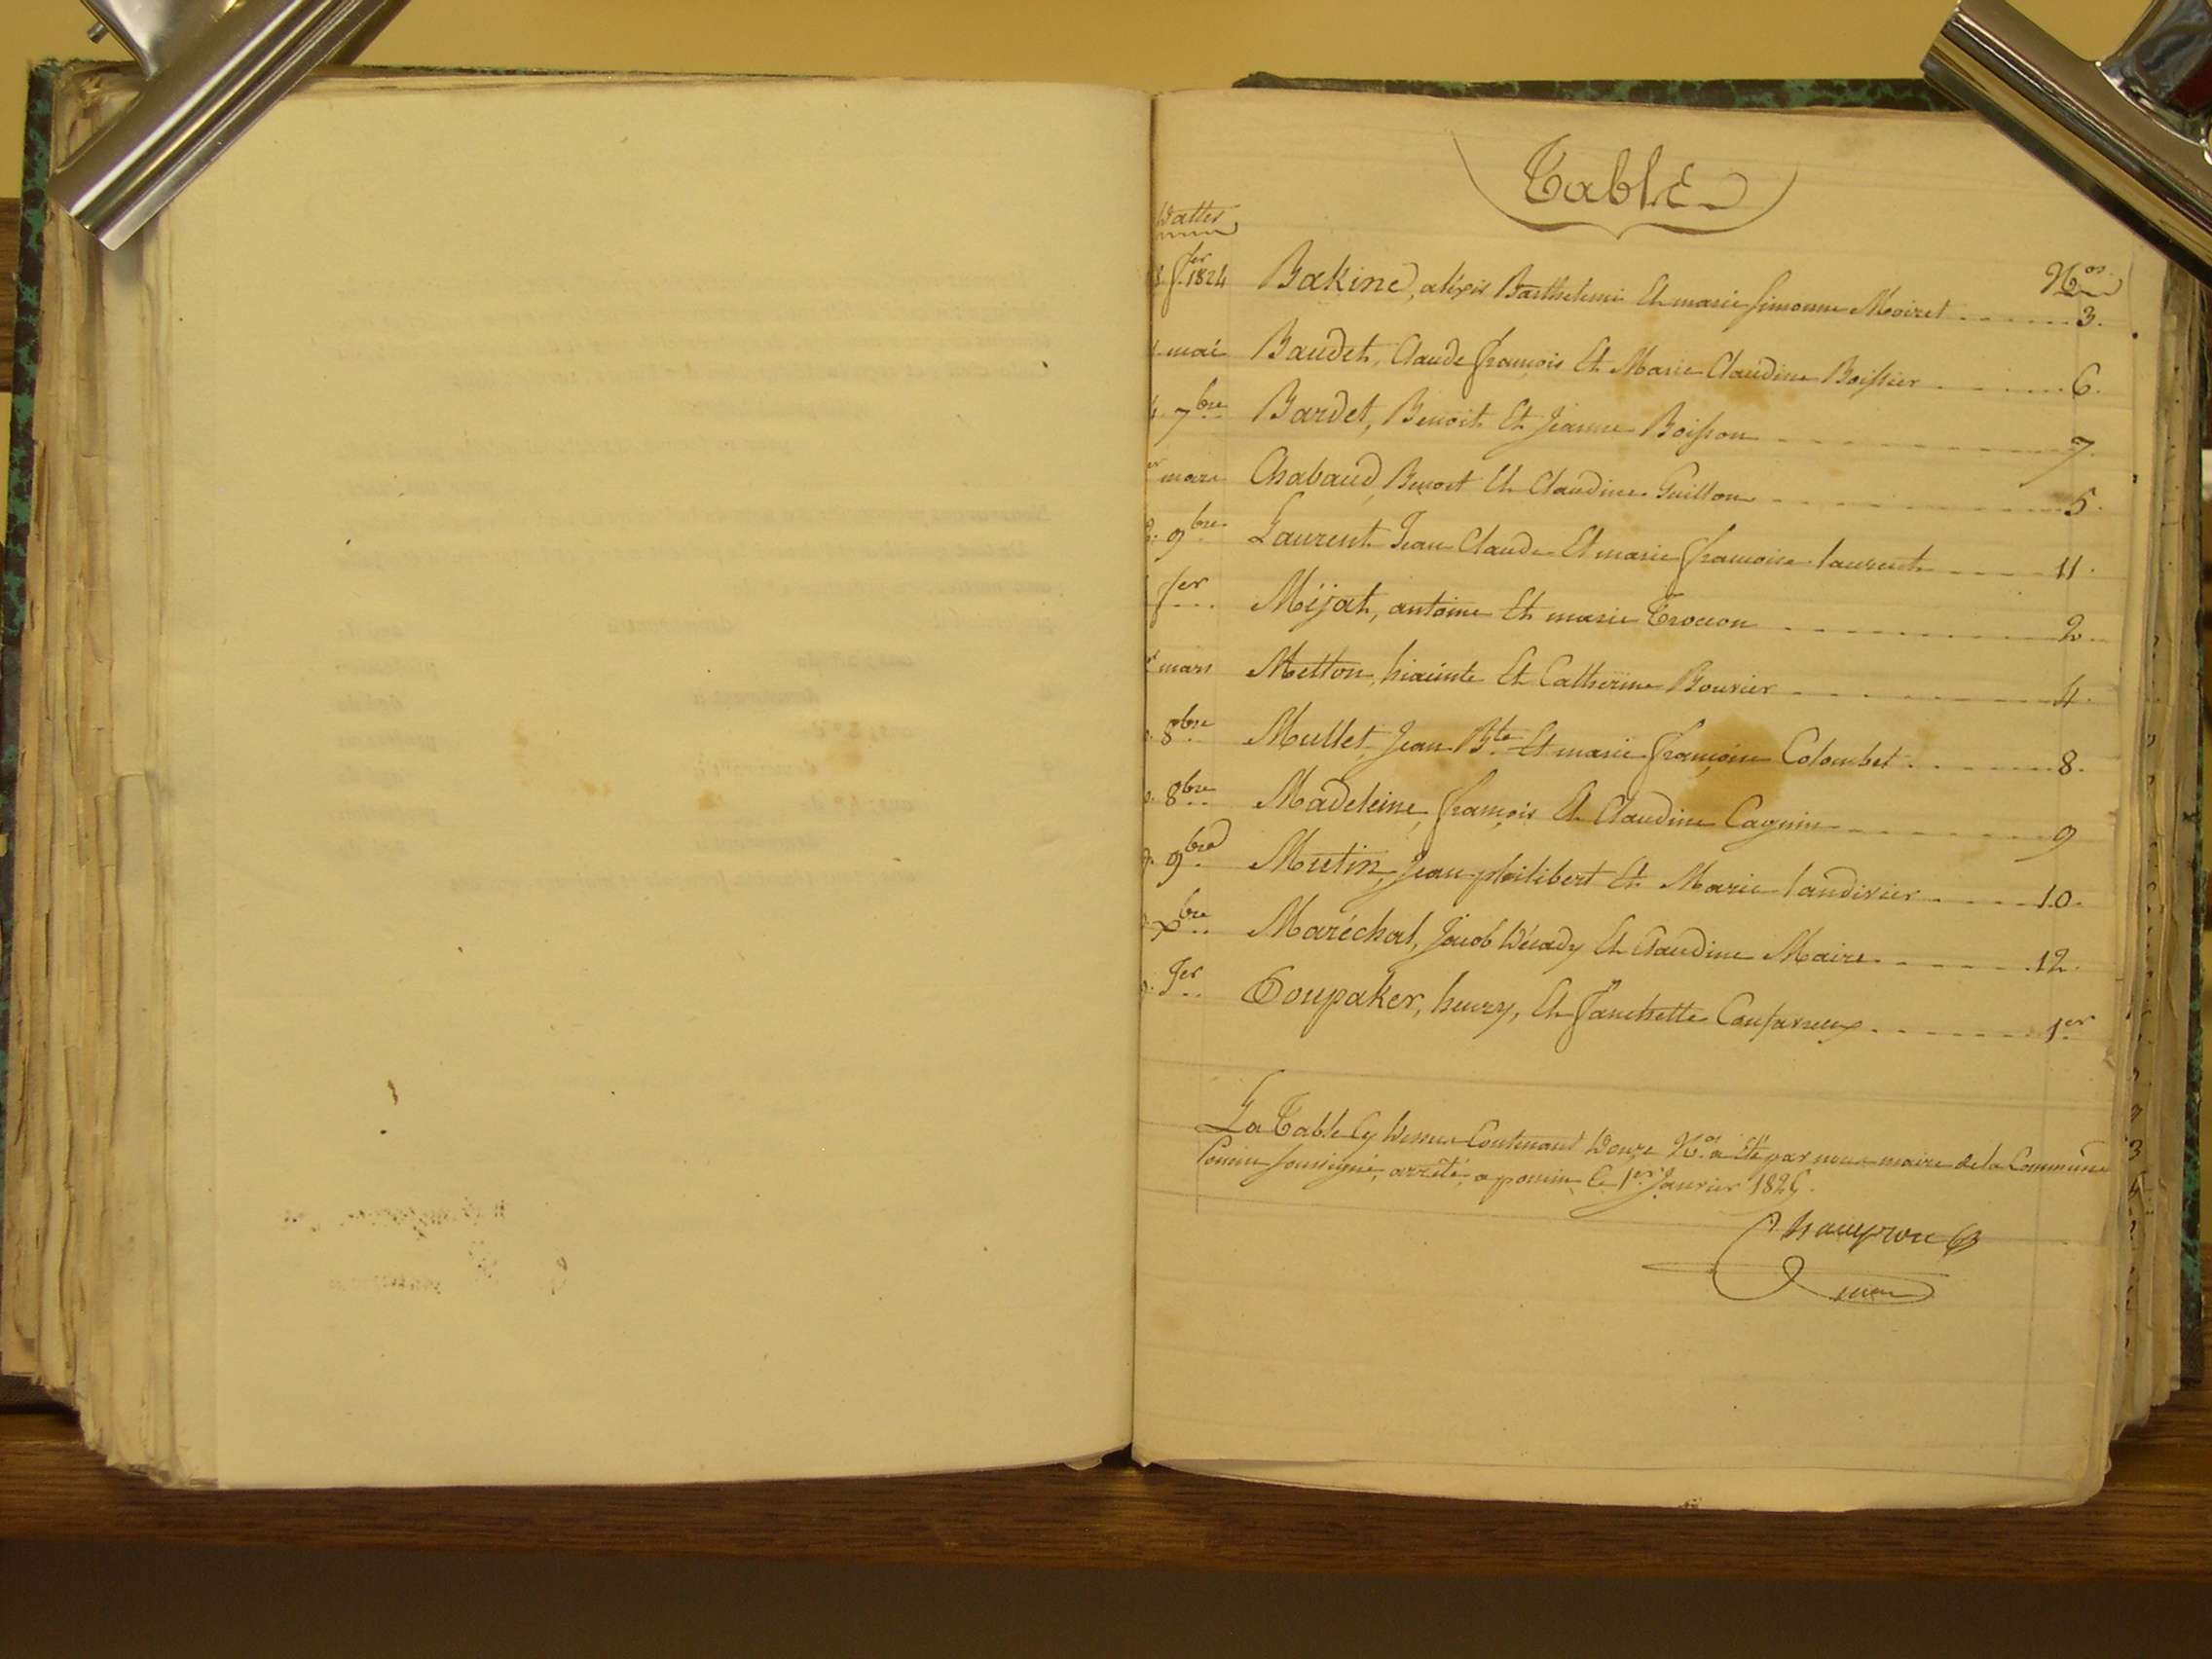 Table
Dattes
Nos
fer 1824 Bakine, aléxis Barthelemi Et marie simonne Moiret 3.
mai Baudet, Claude françois Et Marie Claudine Boissier 6.
7bre Bardet, Benoit Et Jeanne Boisson 7.
mars Chabaud, Benoit Et Claudine Guillon 5.
9bre Laurent Jean Claude Et marie françoise laurent 11.
fer Méjat, antoine Et marie 2.
mars Metton, hiacinte Et Catherine Bouvier 4.
8bre Mullet, Jean Bte Et marie françoise Colombet 8.
8bre Madeleine, françois Et Claudine 9
9bre Mutin, Jean philibert Et Marie 10.
Xbre Maréchal, Jacob Décady Et Claudine Maire 12.
Jer henry, Et fanchette 1er
La Table Cy Dessus Contenant Douze Nos a Eté par nous maire de la Commune
soussigné, arrêté, a le 1er Janvier 1825.